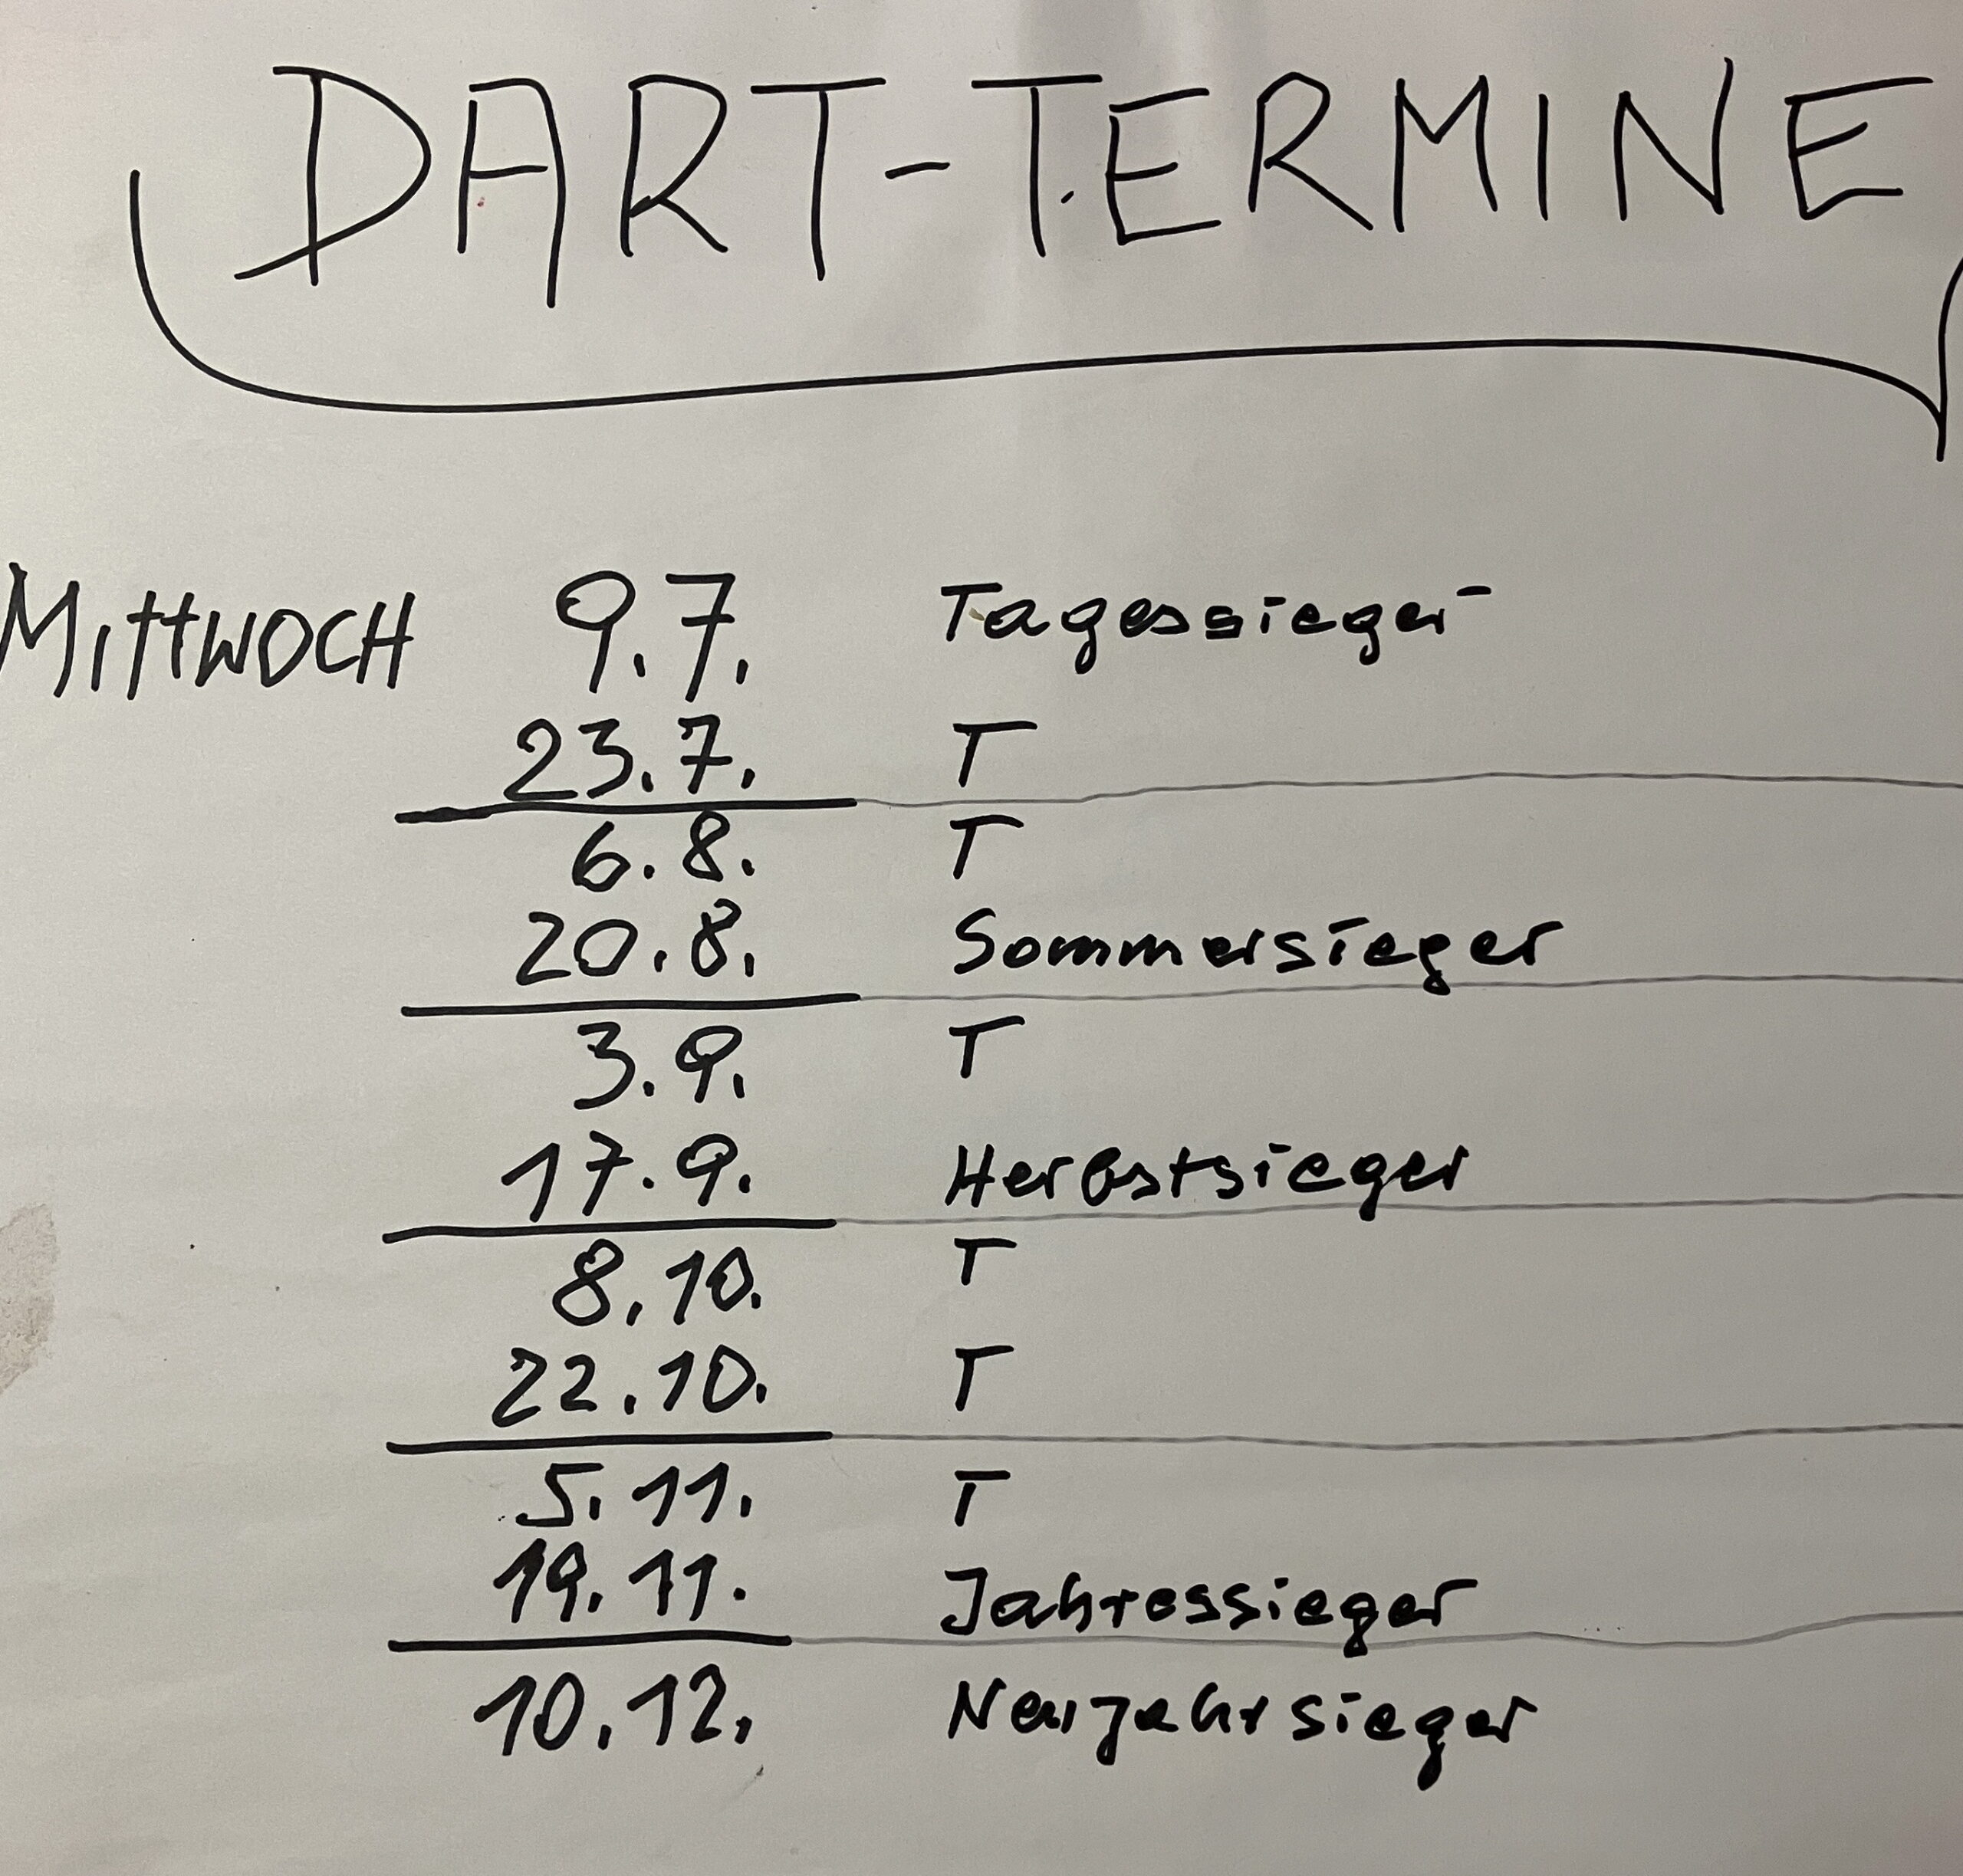 DART-TERMINE
MITTWOCH 9.7. Tagessieger
23.7. T
6.8. T
20.8. Sommersieger
3.9. T
17.9. Herbstsieger
8.10. T
22.10. T
5.11. T
19.11. Jahressieger
10.12. Neujahrsieger